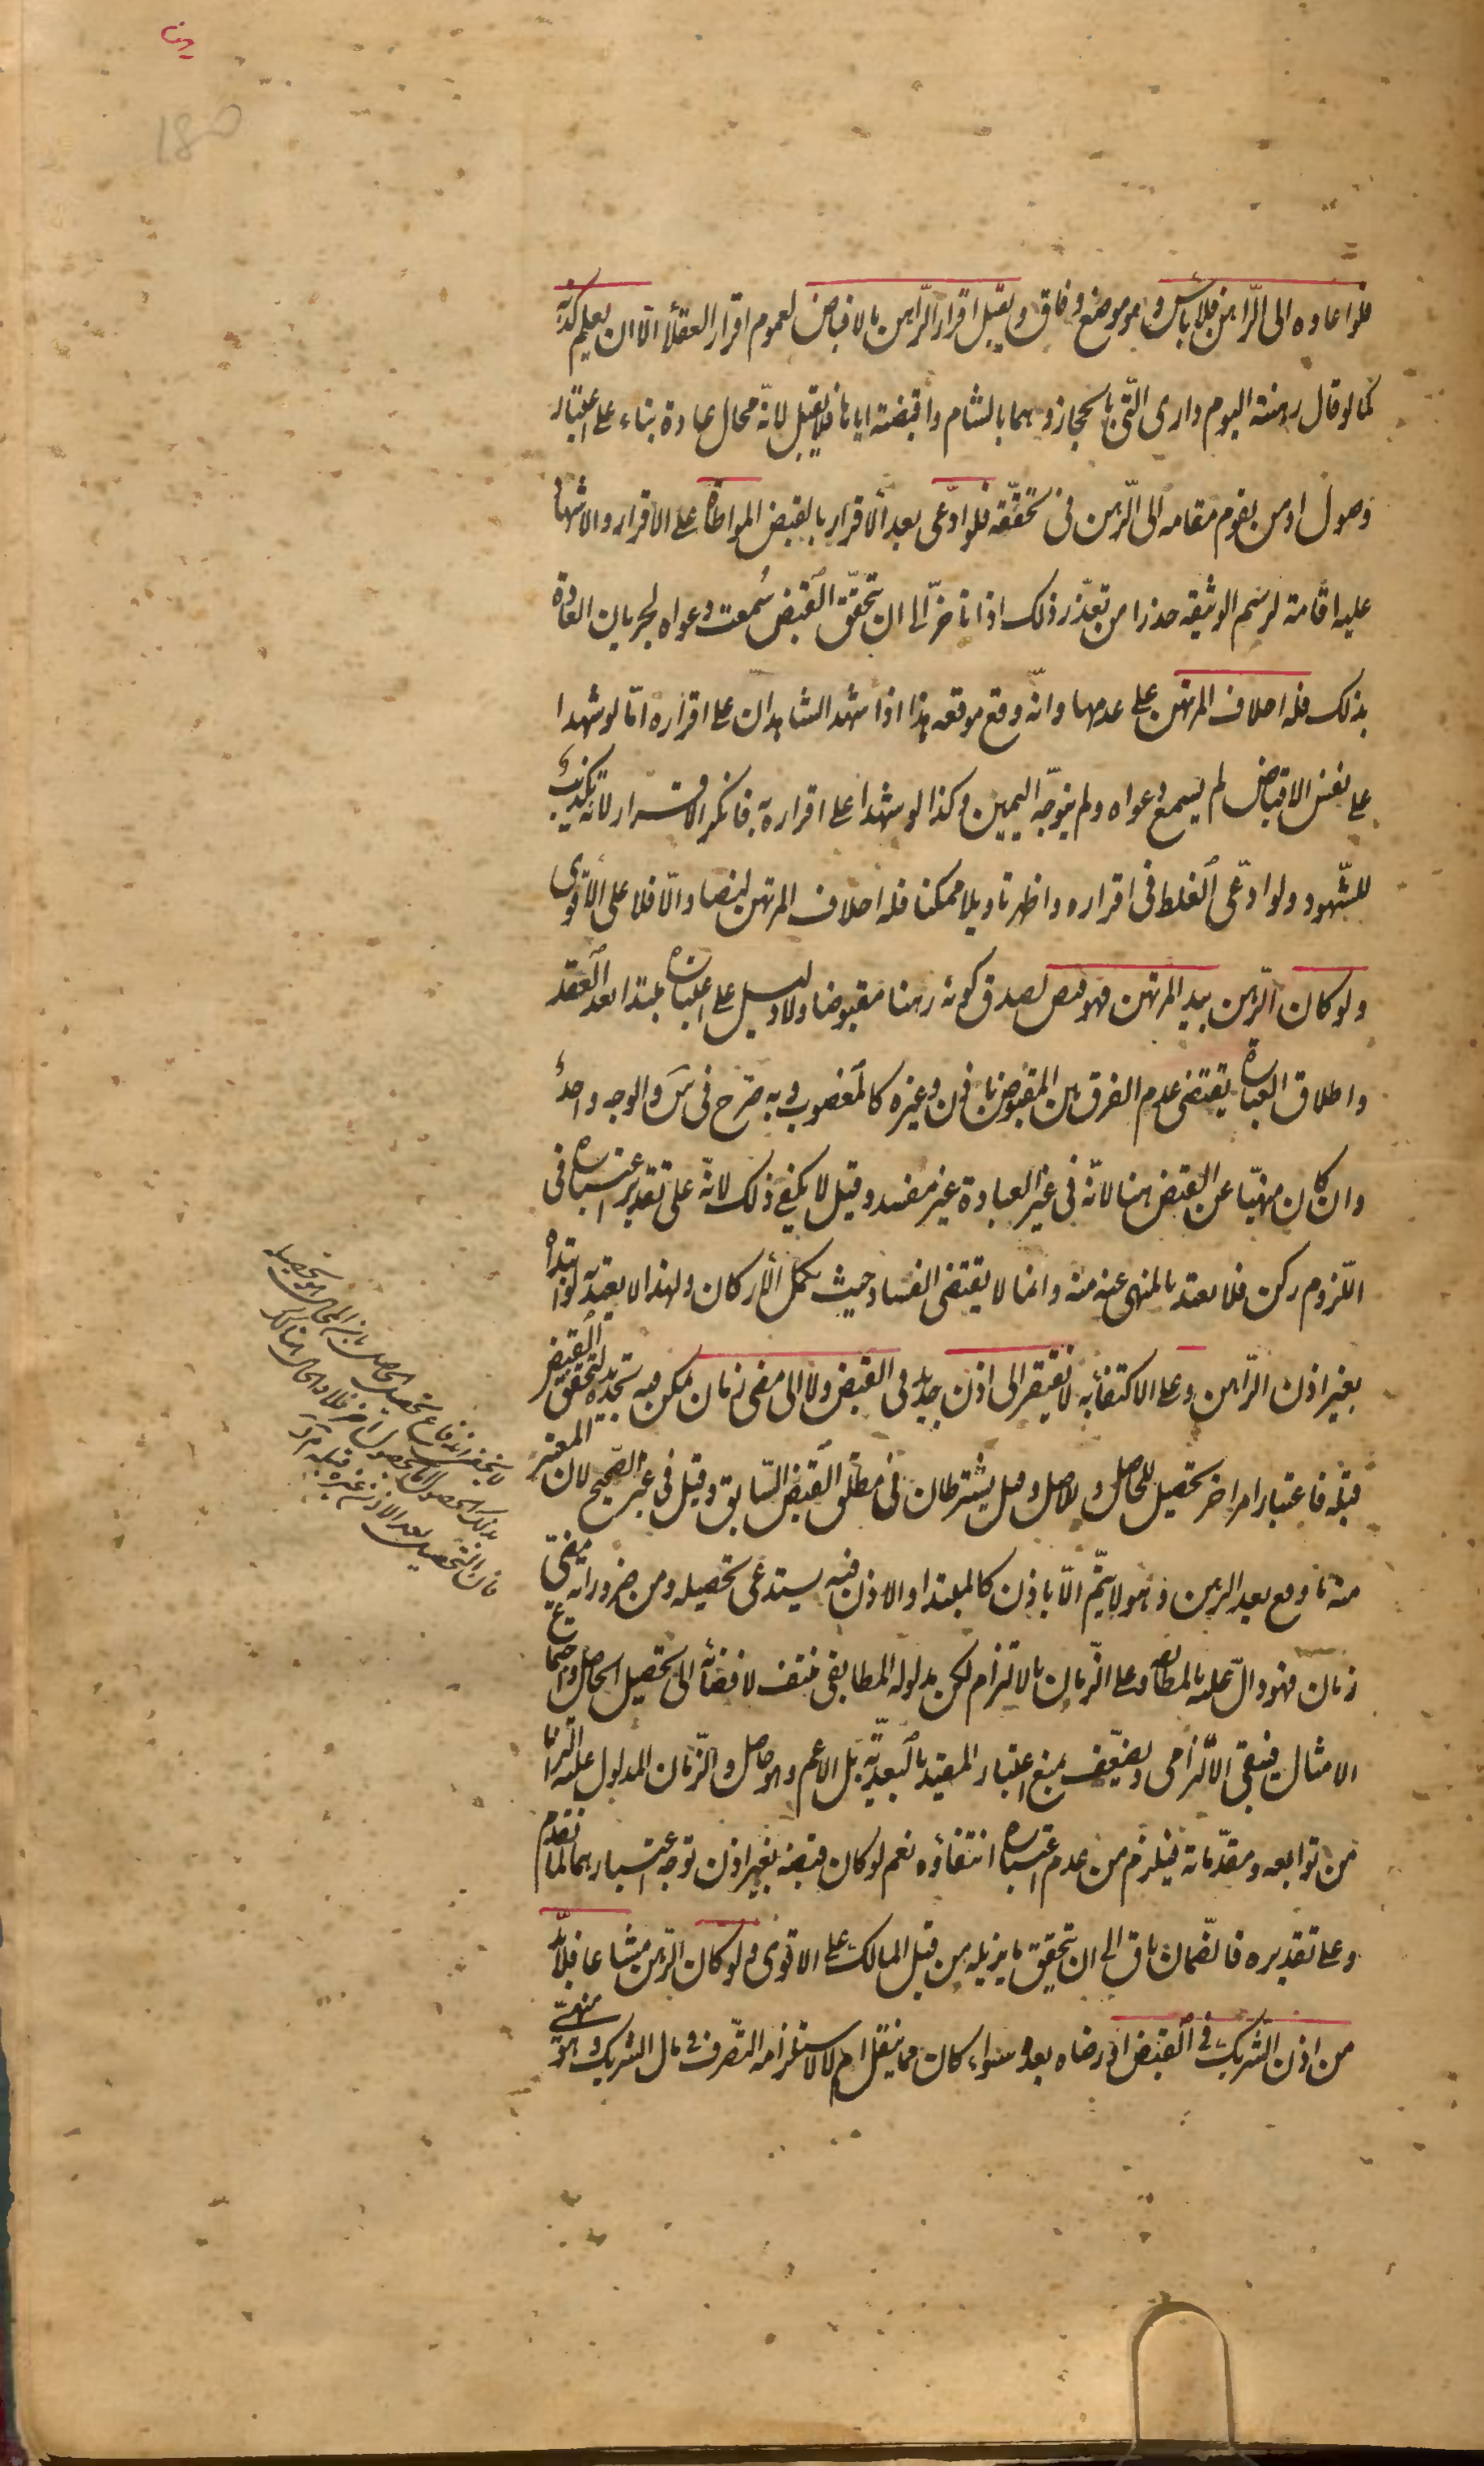 فلو اعاده الى الرّاهن فلا بأس وهو موضع وفاق ويقبل اقرار الرّاهن بالاقباض لعموم اقرار العقلأ الّا ان يعلم كذبه
كما لو قال رهنته اليوم دارى الّتى بالحجاز وهما بالشام واقبضته اياها فلا يقبل لانّه محال عادة بناء على اعتبار
وصول او من يقوم مقامه الى الرّهن فى تحقّقه فلو ادّعى بعد الاقرار بالقبض المواطاة على الاقرار والاشها
عليه اقامة لرسم الوثيقه حذرا من تعذّر ذلك اذا تاخّر الى ان تحقّق القبض سُمعت دعواه لجريان العادة
بذلك فله احلاف المرتهن على عدمها وانّه وقع موقعه هذا اذا شهد الشاهدان على اقراره امّا لو شهدا
على نفس الاقباض لم يسمع دعواه ولم يتوجّه اليمين وكذا لو شهدا على اقراره به فانكر الاقرار لانّه تكذيب
للشّهود ولو ادّعى الغلط فى اقراره واظهر تاويلا ممكنا فله احلاف المرتهن ايضا والّا فلا على الاقوى
ولو كان الرّهن بيد المرتهن فهو قبض لصدق كونه رهنا مقبوضا ولا دليل على اعتباره مبتدا بعد العقد
واطلاق العبارة يقتضى عدم الفرق بين المقبوض باذن وغيره كالمغصوب وبه صّرح فى س والوجه واحد
وان كان منهيّا عن القبض هنا لانّه فى غير العبادة غير مفسد وقيل لا يكفى ذلك لانّه على تقدير اعتباره فى
اللّزوم ركن فلا يعتد بالمنهى عنه منه وانما لا يقتضى الفساد حيث تكمل الاركان ولهذا لا يعتد به لو ابتداه
بغير اذن الرّاهن وعلى الاكتفأ به لا يفتقر الى اذن جديد فى القبض ولا الى مضى زمان يمكن فيه تجديده لتحقق القبض
قبله فاعتبار امر اخر تحصيل للحاصل وللاصل وقيل يشترطان فى مطلق القبض السّابق وقيل فى غير الصّحيح لان المعتبر
منه ما وقع بعد الرهن وهو لا يتمّ الّا باذن كالمبتدا والاذن فيه يستدعى تحصيله ومن ضروراته مضىّ
زمان فهو دالّ عليه بالمطابقه وعلى الزّمان بالالتزام لكن مدلوله المطابقى منتف لافضائه الى تحصيل الحاصل واجتماع
الامثال فيبقى الالتزامى ويضعّف بمنع اعتبار المقيد بالبعديّة بل الاعم وهو حاصل والزّمان المدلول عليه التزاما
من توابعه ومقدّماته فيلزم من عدم اعتباره انتفاؤه نعم لو كان قبضه بغير اذن توجّه اعتبارهما لما تقدم
وعلى تقديره فالضّمان باق الى ان يتحقق ما يزيله من قبل المالك على الاقوى ولو كان الرّهن مشاعا فلا بدّ
من اذن الشريك فى القبض او رضاه بعده سواء كان مما ينقل ام لا لاستلزامه التّصرف فى مال الشريك وهو منهىّ